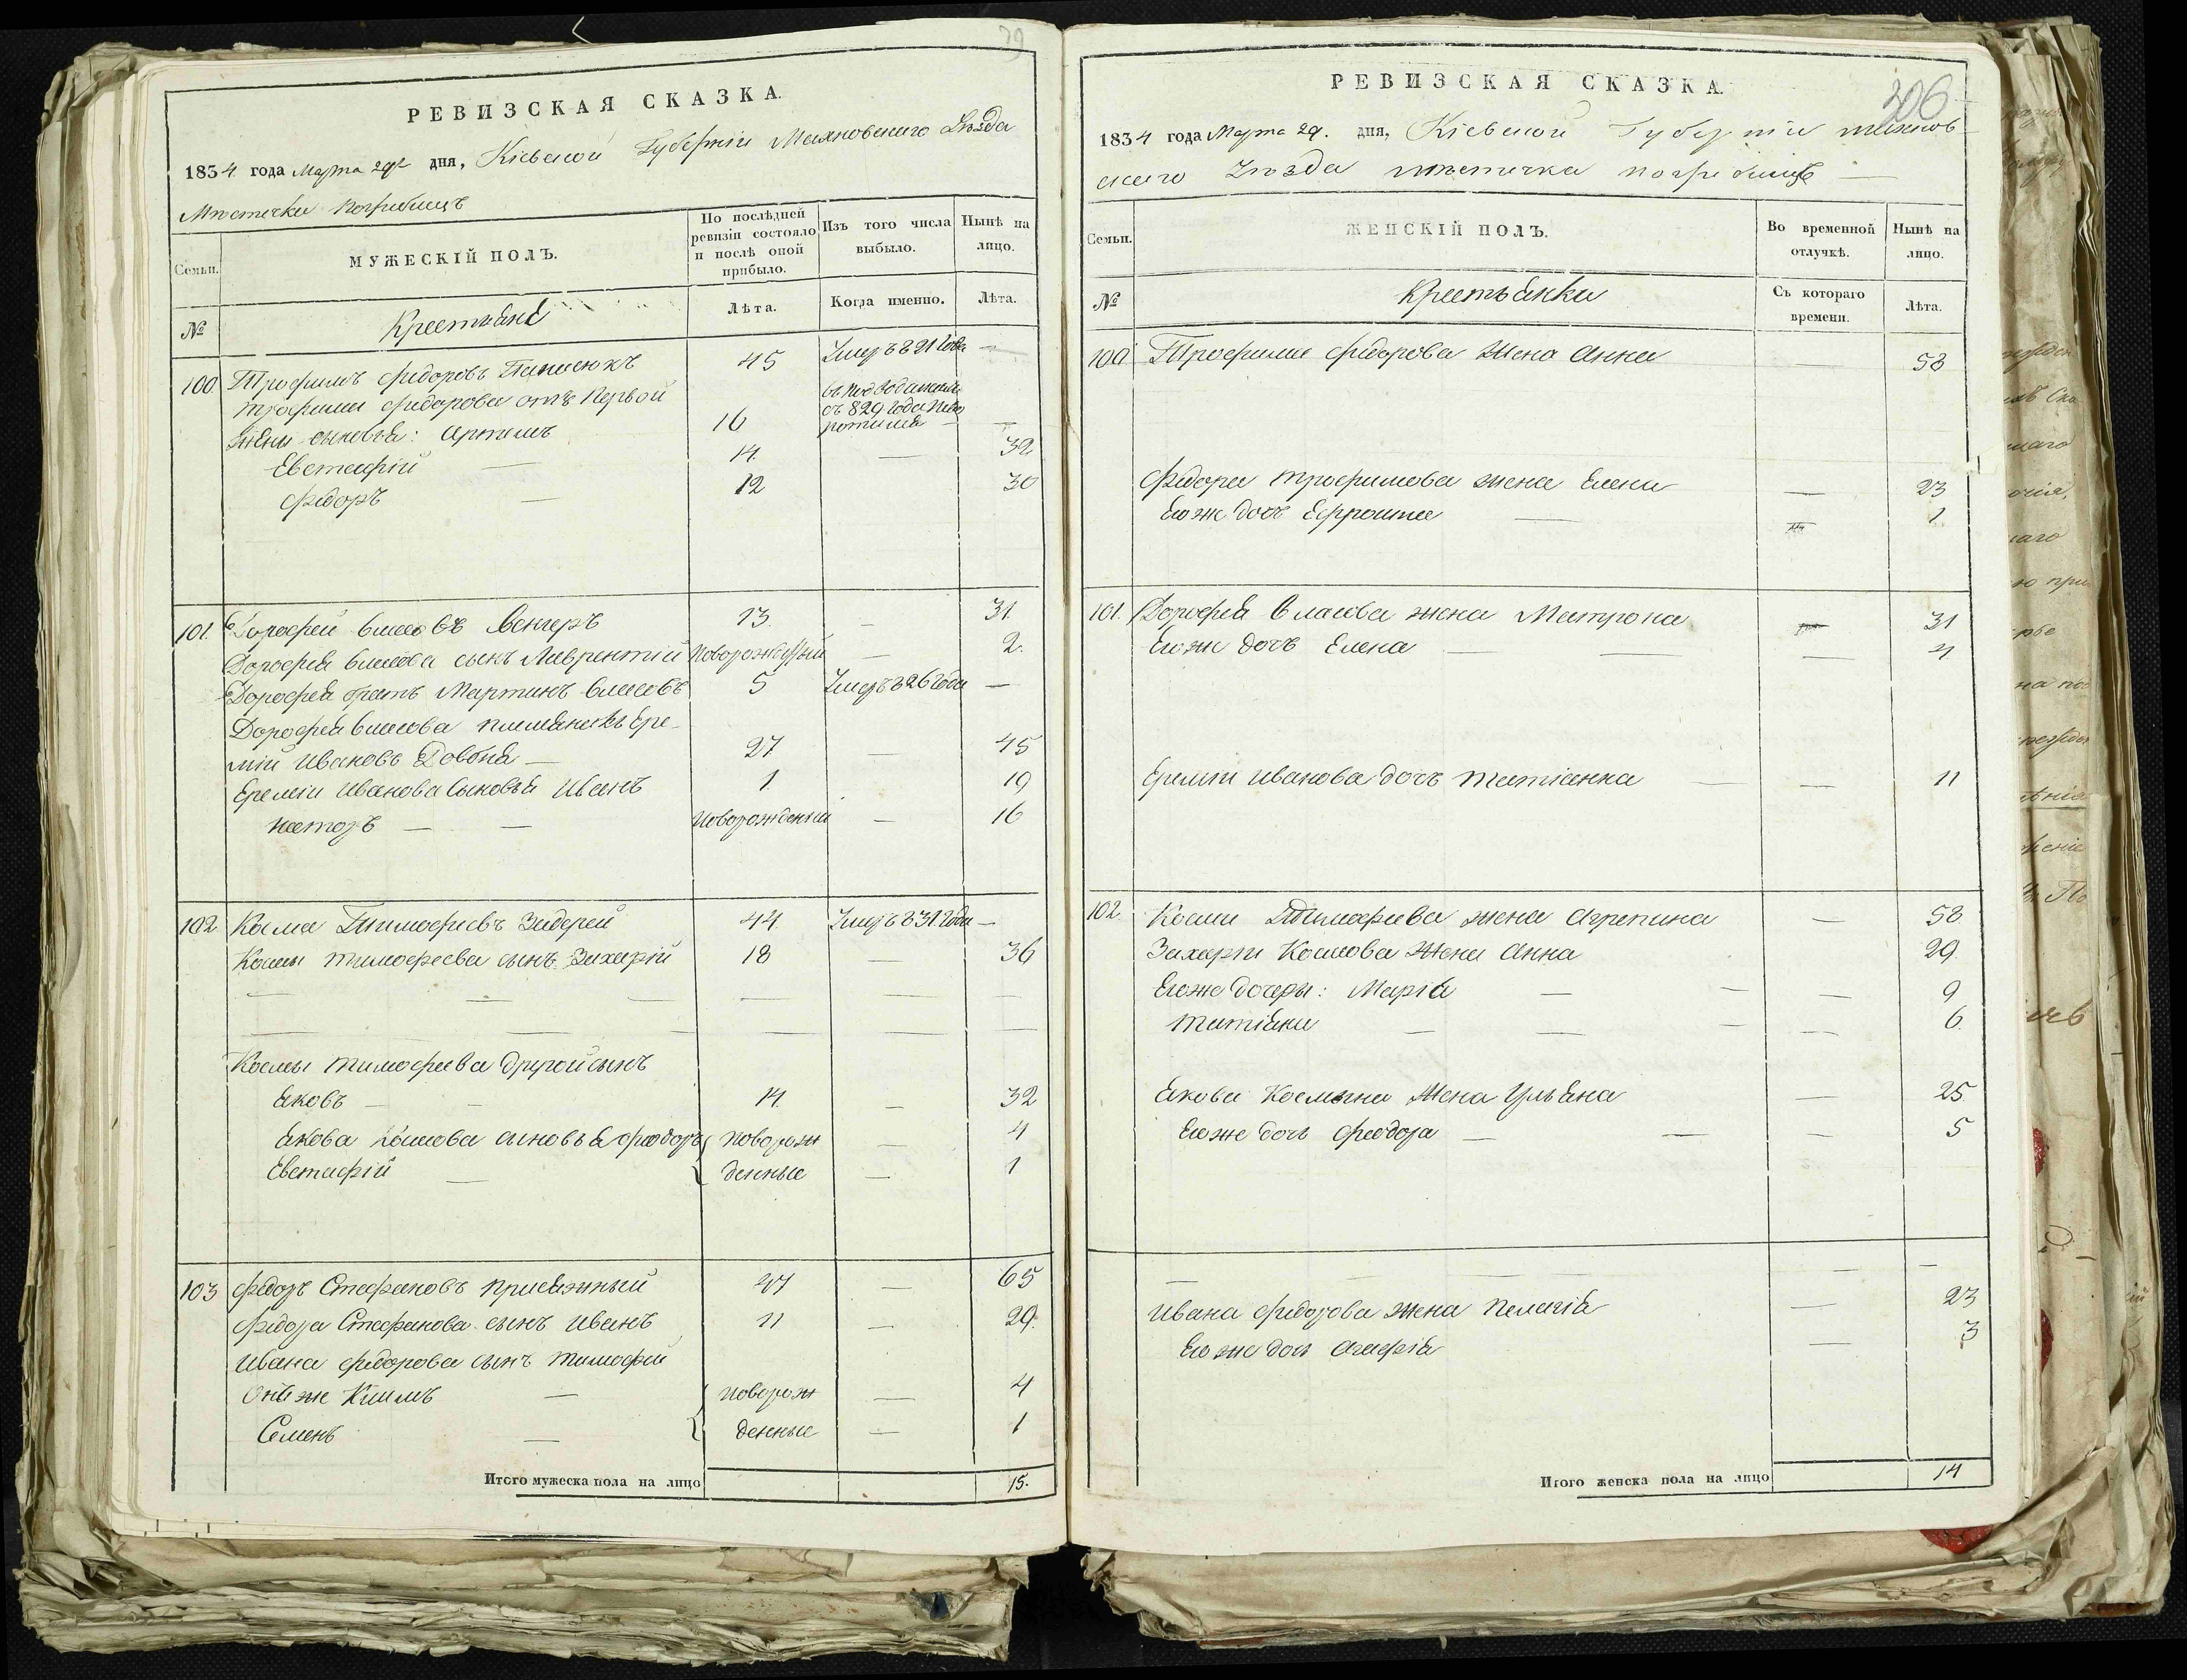 79
РЕВИЗСКАЯ СКАЗКА.
1834 года Марта 29 дня, Кіевской Губерніи Махновского Уѣзда
Мѣстечки Погребищъ
Семьи.
МУЖЕСКІЙ ПОЛЪ.
По послѣдней ревизіи состояло и послѣ оной прибыло.
Изъ того числа выбыло.
Нынѣ на лицо.
№
Крестьяне
Лѣта.
Когда именно.
Лѣта.
100 Трофимъ Федоровъ Панасюкъ 45 Умеръ 821 Года —
Трофима Федорова отъ Первой
жены сыновья: Артемъ 16 съ 829 Года —
Евстафій — 14. — 32
Федоръ — 12 30
101. Дорофей Власовъ Венгеръ 13. — 31.
Дорофея Власова сынъ Лаврентій Новорожденый — 2.
Дорофея братъ Мартинъ Власовъ 5 Умеръ 826 Года —
Дорофея Власова племяникъ Ере-
мій Ивановъ Довбня — 27 — 45
Еремии Иванова Сыновья Иванъ 1. 19
Несторъ — — Новорожденый — 16
102 Косма Тимофеевъ 44. Умеръ 831. Года —
Космы Тимофеева сынъ Захарій 18 — 36
Космы Тимофеева другой сынъ
Яковъ — — 14. — 32
Якова Космова сыновья Феодоръ новорож — 4
Евстафій — денные — 1
103 Федоръ Стефановъ Присяжный 47 — 65
Федора Стефанова сынъ Иванъ 11 — 29.
Ивана Федорова сынъ Тимофей
Онъ же Климъ — новорож — 4
Семенъ — денные — 1
Итого мужеска пола на лицо 15.
306
РЕВИЗСКАЯ СКАЗКА.
1834 года Марта 29. дня, Кіевской Губерніи Махнов-
ского Уѣзда мѣстечка Погребищъ —
Семьи.
ЖЕНСКІЙ ПОЛЪ.
Во временной отлучкѣ.
Нынѣ на лицо.
№
Крестьянки
Съ котораго времени.
Лѣта.
100 Трофима Федорова Жена Анна — 58
Федора Трофимова жена Елена — 23
Его же дочь — 1
101. Дорофея Власова жена Матрона — 31
Его же дочь Елена — — — 4
Еремии Иванова дочь Татіанна — — 11
102. Космы Тимофеева жена Агрепина — 58
Захарія Космова Жена Анна 29.
Его же дочери: Марія — — — 9
Татіана — — — — 6.
Якова Космина Жена Ульяна — 25
Его же дочь Феодора — — — 5
Ивана Федорова жена Пелагія — 23
Его же дочь Агафія — 3
Итого женска пола на лицо 14